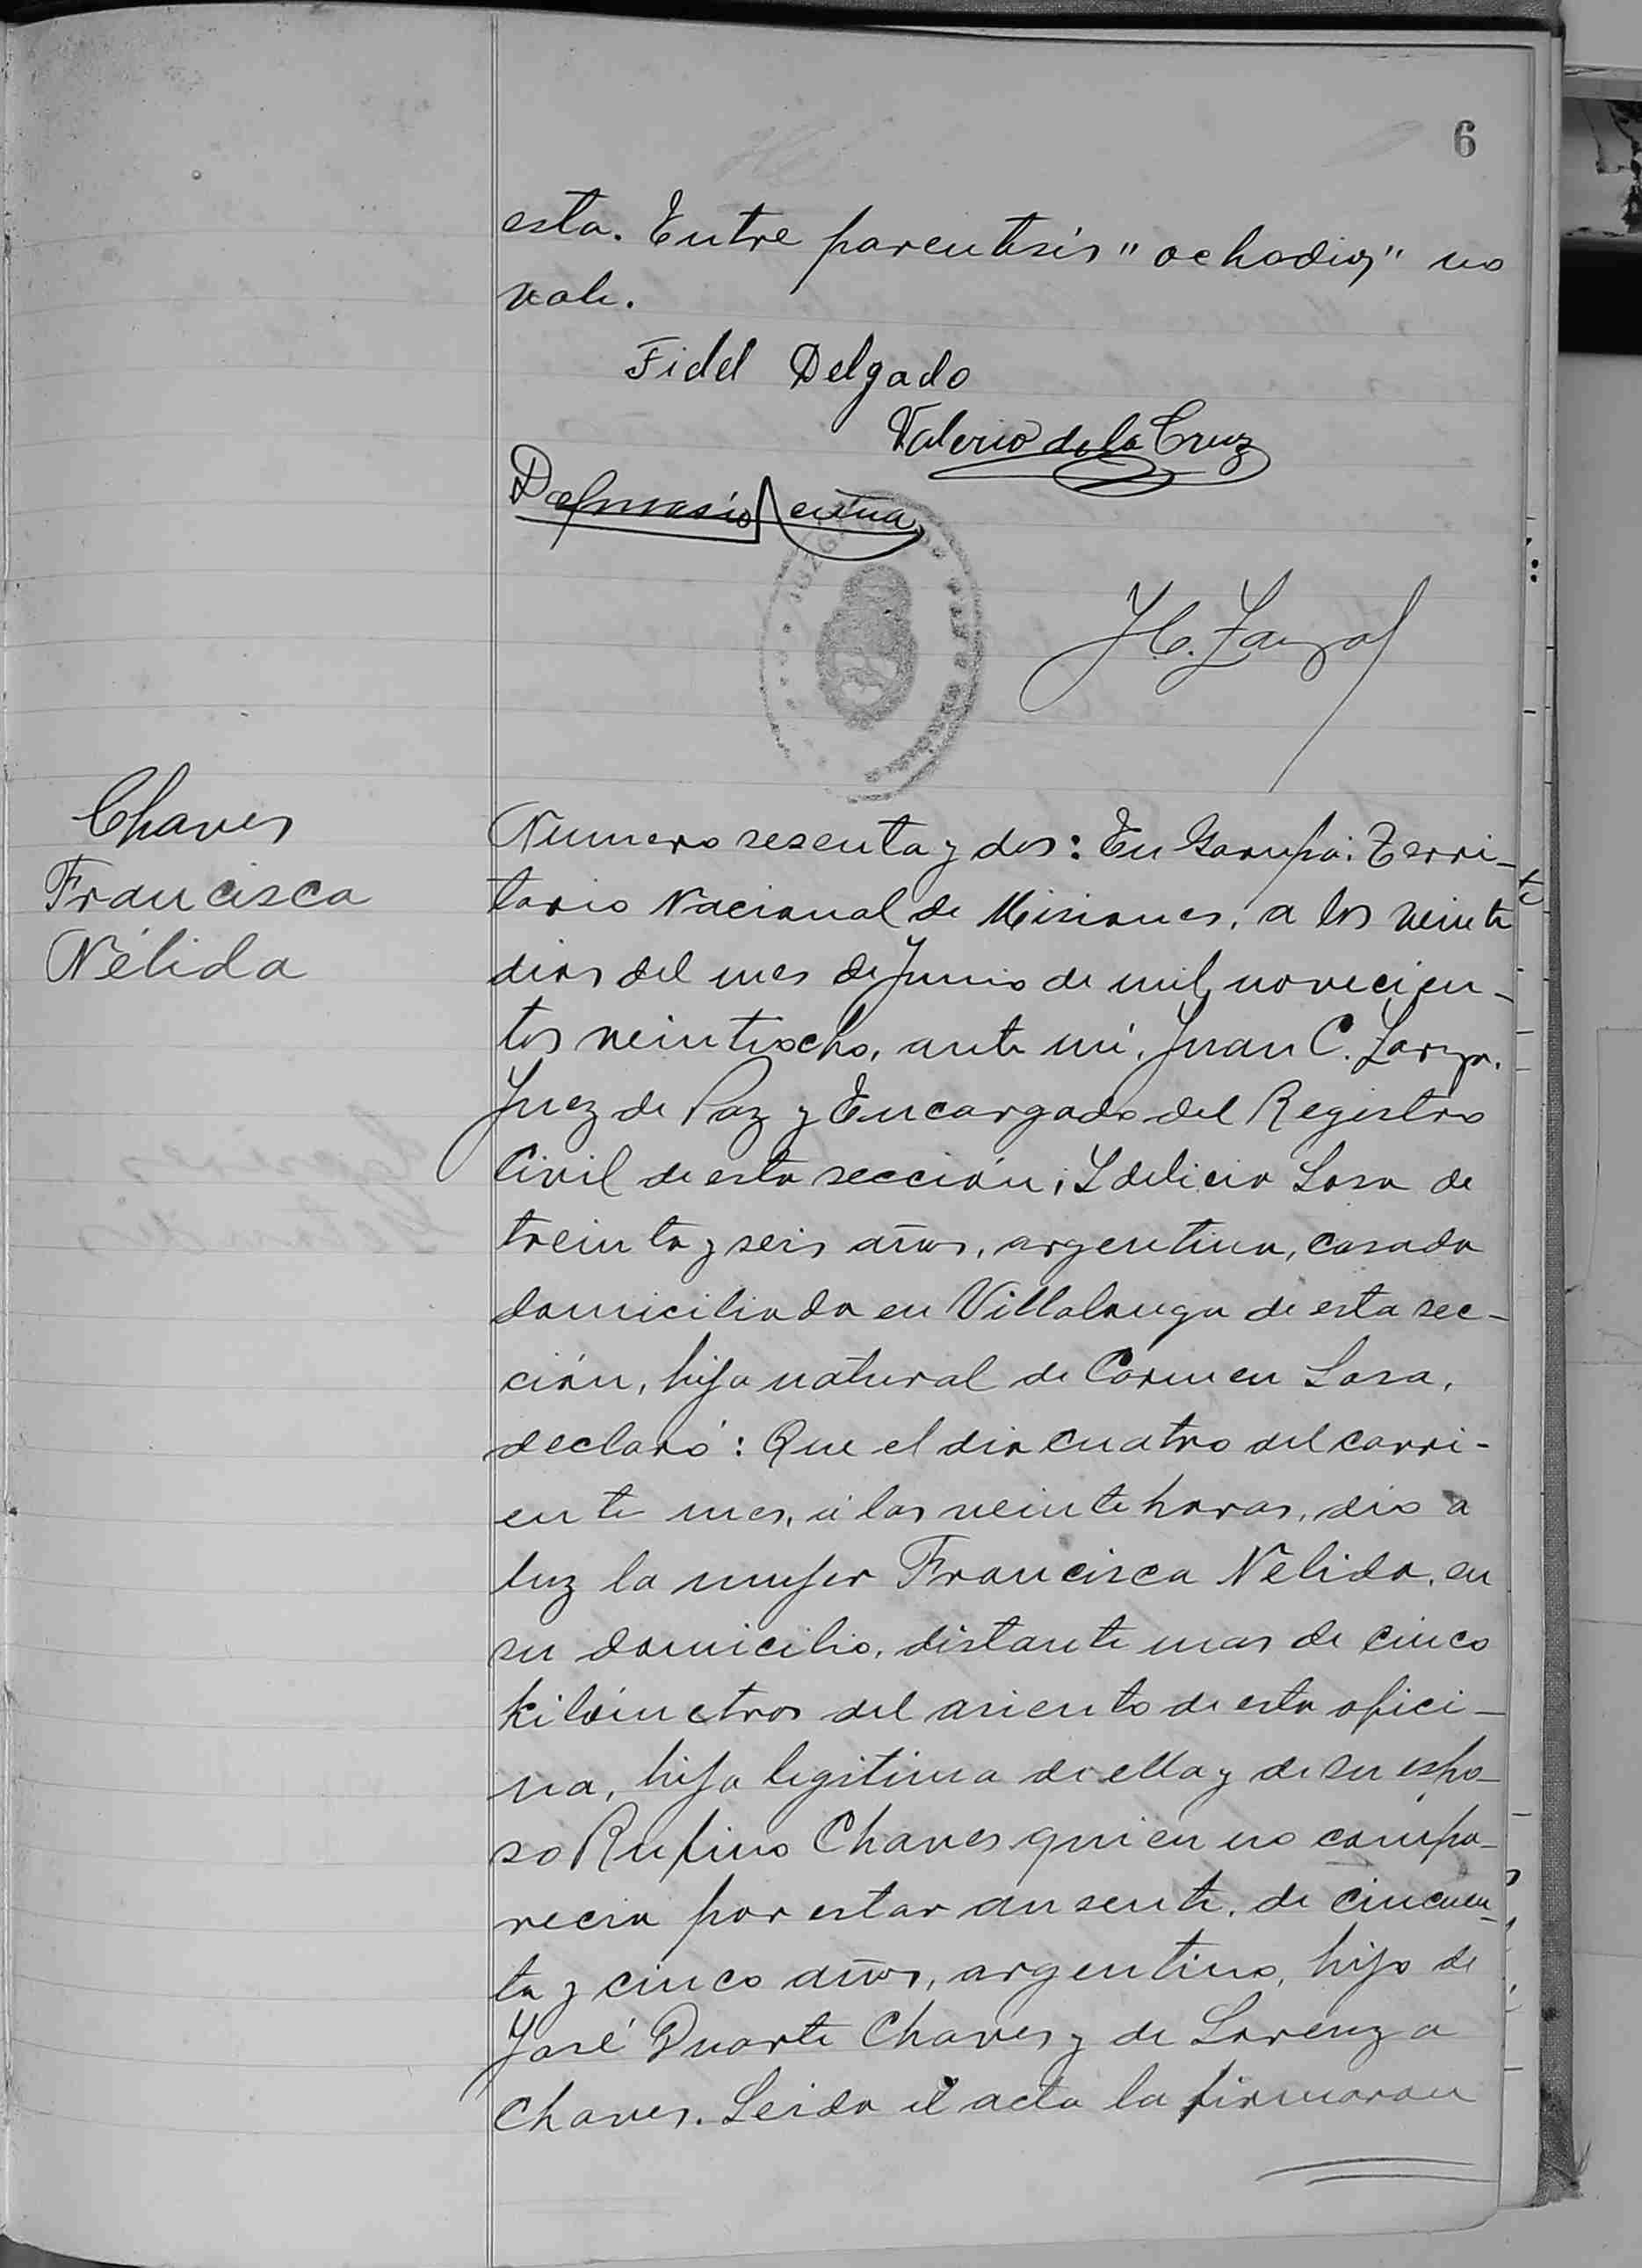 6
esta. Entre parentesis " ochodias" no
vale.
Fidel Delgado
Valerio de la Cruz
JUZG
Chaves
Francisca
Nélida
Numero sesenta y dos: En Garupá: Terri-
torio Nacional de Misiones, a los veinte
dias del mes de Junio de mil novecien-
tos veintiocho, ante mí, Juan C.
Juez de Paz y Encargado del Registro
Civil de esta sección, Ydelicia Sosa de
treinta y seis años, argentina, casada
domiciliada en Villalonga de esta sec-
ción, hija natural de Carmen Sosa,
declaró: Que el dia cuatro del corri-
ente mes, á las veinte horas, dio a
luz la mujer Francisca Nélida, en
su domicilio, distante mas de cinco
kilómetros del asiento de esta ofici-
na, hija legitima de ella y de su espo-
so Rufino Chaves quien no compa-
recia por estar ausente, de cincuen-
ta y cinco años, argentino, hijo de
José Duarte Chaves y de Lorenza
Chaves. Leida el acta la firmaron